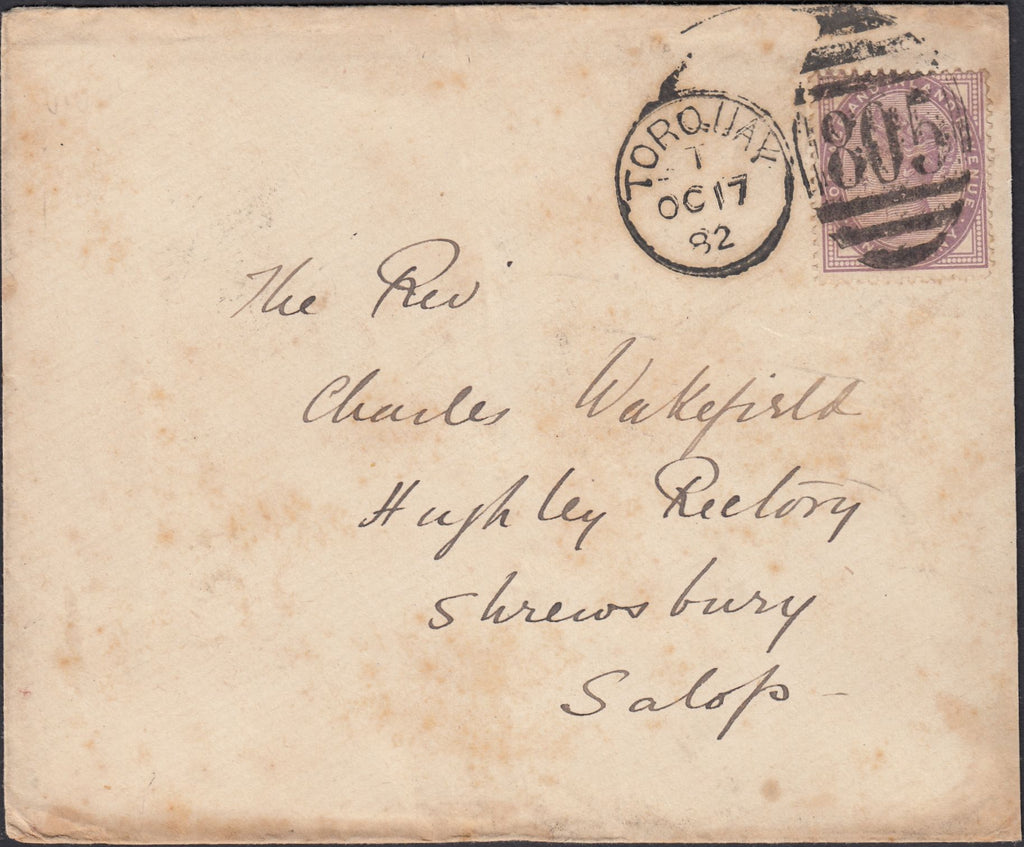 TORQUAY
7
OC 17
82
805
The Rev
Charles Wakefield
Hughley Rectory
Shrewsbury
Salop